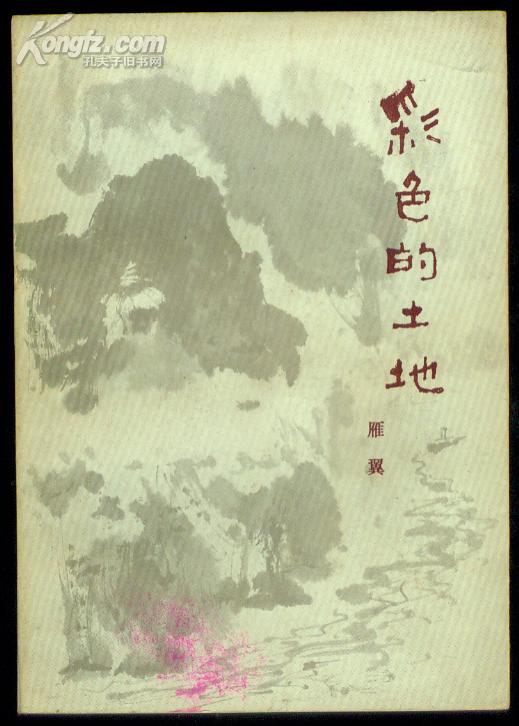 Kongfz.com
孔夫子旧书网
彩色的土地
雁翼